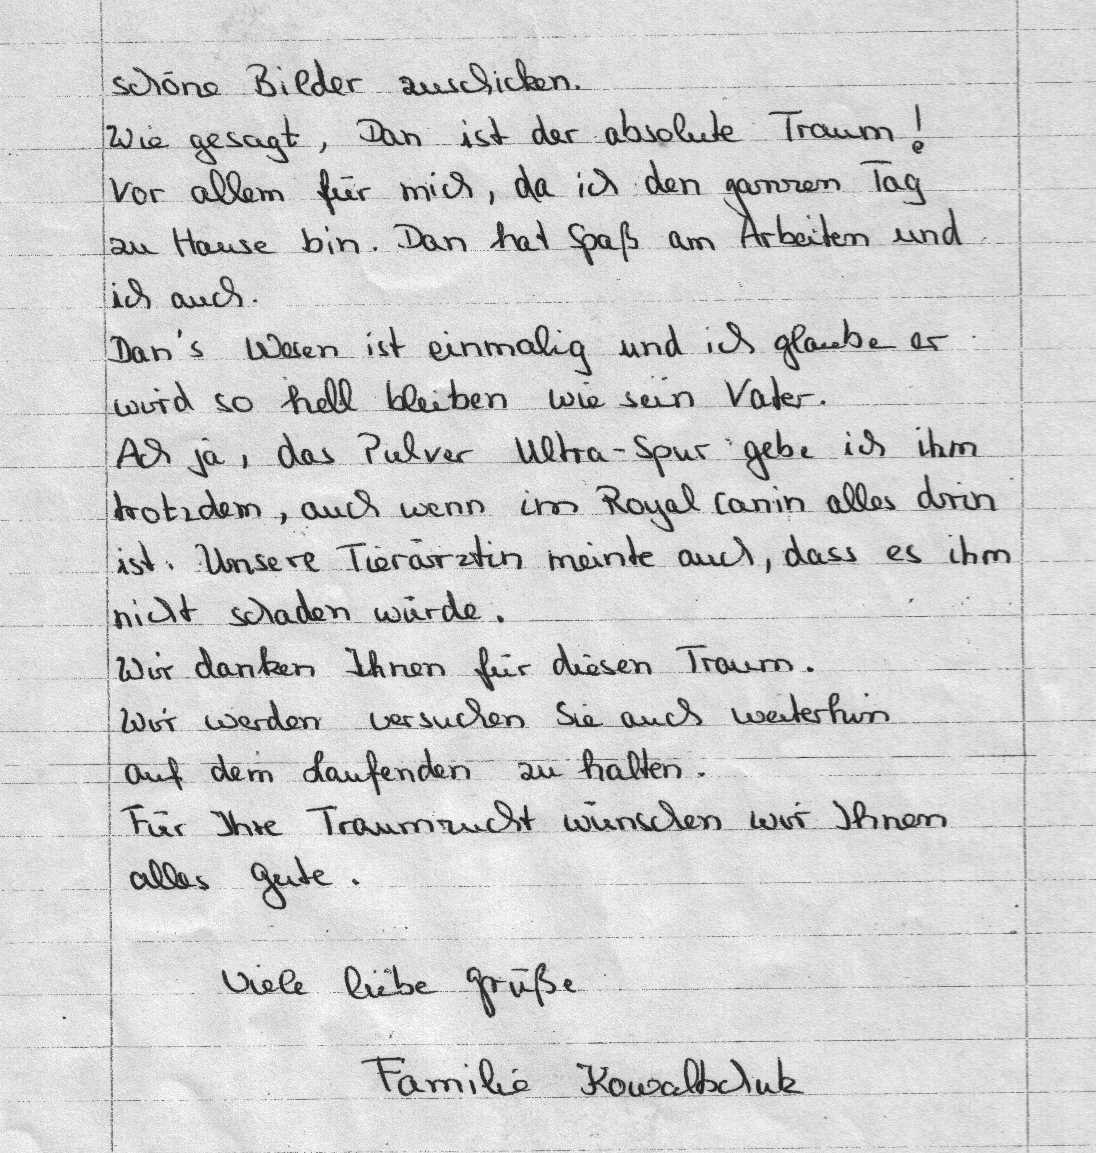 schöne Bilder zuschicken.
Wie gesagt, Dan ist der absolute Traum!
Vor allem für mich, da ich den ganzen Tag
zu Hause bin. Dan hat Spaß am Arbeiten und
ich auch.
Dan's Wesen ist einmalig und ich glaube er
wird so hell bleiben wie sein Vater.
Ach ja, das Pulver Ultra-Spur gebe ich ihm
trotzdem, auch wenn im Royal Canin alles drin
ist. Unsere Tierärztin meinte auch, dass es ihm
nicht schaden würde.
Wir danken Ihnen für diesen Traum.
Wir werden versuchen Sie auch weiterhin
auf dem Laufenden zu halten.
Für Ihre Traumzucht wünschen wir Ihnen
alles gute.
Viele liebe Grüße
Familie